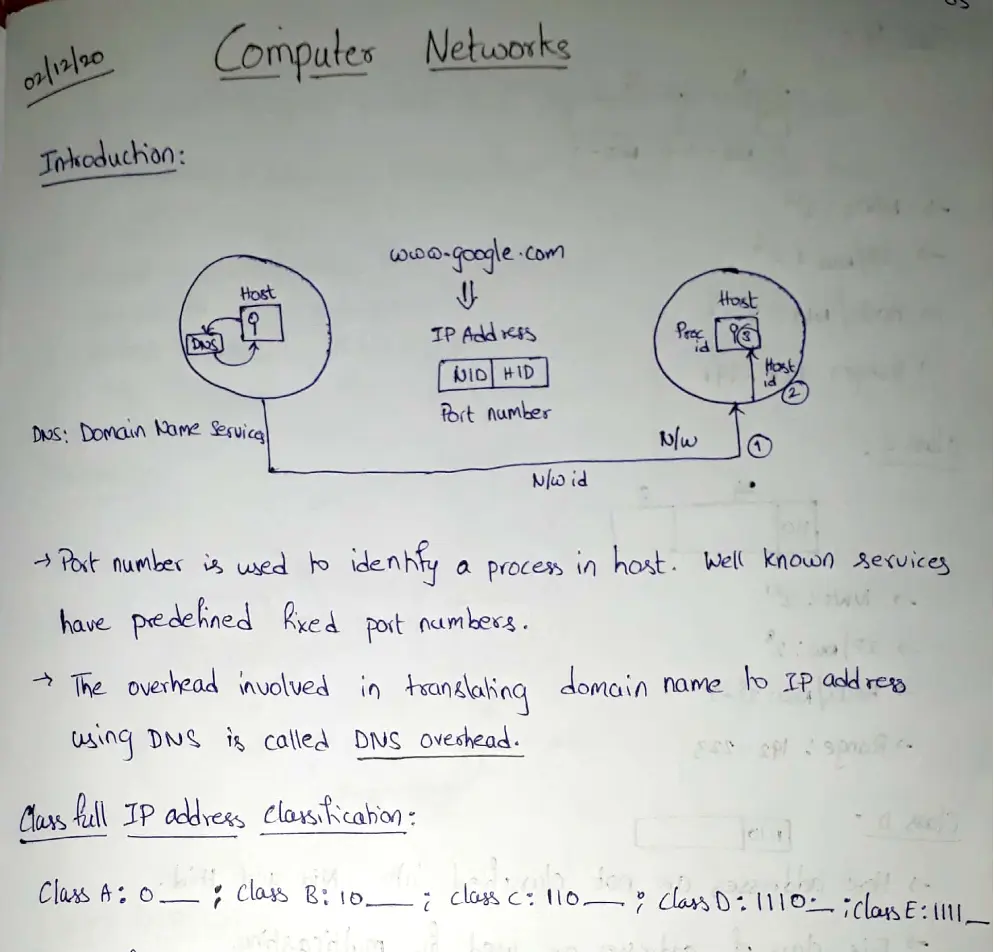 02/12/20
Computer Networks
Introduction:
www.google.com
Host
DNS
IP Address
NID HID
Port number
Host
Proc id
3
Host id
2
DNS: Domain Name Service
N/w
1
N/w id
→ Port number is used to identify a process in host. Well known services
have predefined fixed port numbers.
→ The overhead involved in translating domain name to IP address
using DNS is called DNS overhead.
Class full IP address classification:
Class A: 0__ ; Class B: 10__ ; class C: 110__ ; Class D: 1110__ ; Class E: 1111__